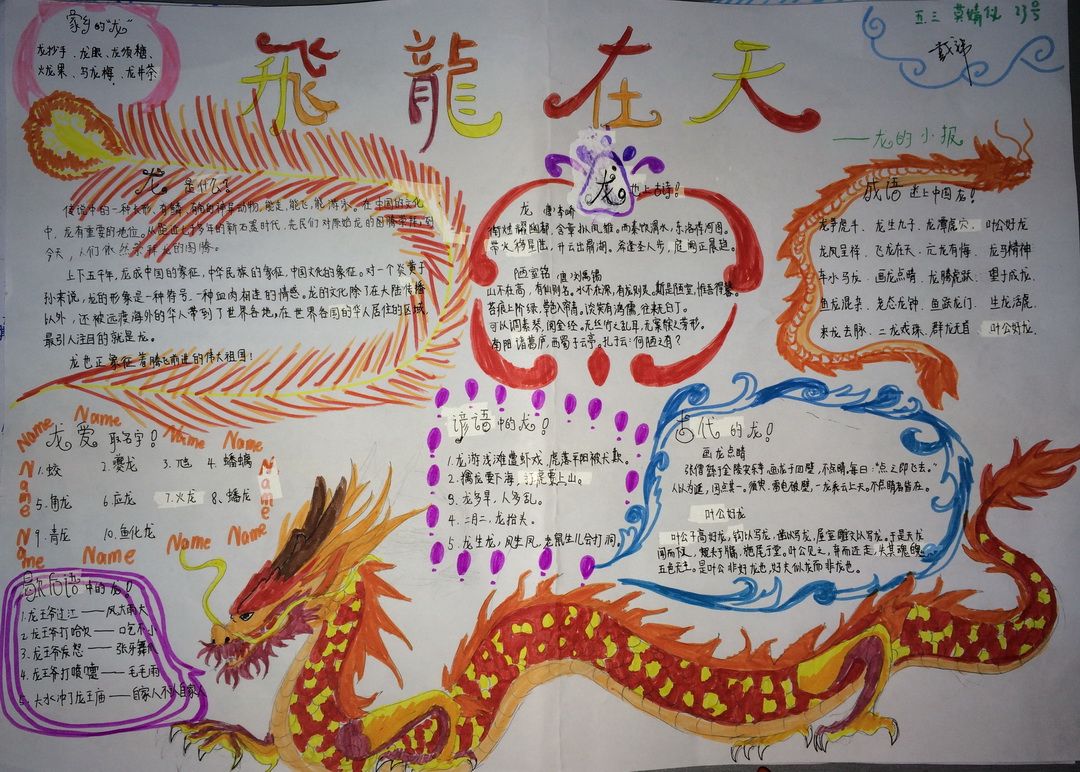 家乡的“龙”
龙抄手、龙眼、龙须糖、
火龙果、马龙椰、龙井茶
五.三
23号
飛龍在天
——龙的小报
龙。是什么？
传说中的一种长形、有鳞、有角的神异动物，能走，能飞，能游泳。在中国的文化
中，龙有重要的地位。从距今七千多年的新石器时代，先民们对原始龙的图腾崇拜，到
今天，人们依然崇拜龙的图腾。
上下五千年，龙成中国的象征，中华民族的象征，中国文化的象征。对一个炎黄子
孙来说，龙的形象是一种符号、一种血肉相连的情感。龙的文化除了在大陆传播
以外，还被远渡海外的华人带到了世界各地，在世界各国的华人居住的区域，
最引人注目的就是龙。
龙也正象征着腾飞前进的伟大祖国！
龙。也上古诗！
龙 唐李峤
衔烛耀幽都，含章拟凤雏。西秦饮渭水，东洛荐河图。
带火移星陆，升云出鼎湖。希逢圣人步，庭阙正晨趋。
陋室铭 唐刘禹锡
山不在高，有仙则名。水不在深，有龙则灵。斯是陋室，惟吾德馨。
苔痕上阶绿，草色入帘青。谈笑有鸿儒，往来无白丁。
可以调素琴，阅金经。无丝竹之乱耳，无案牍之劳形。
南阳诸葛庐，西蜀子云亭。孔子云：何陋之有？
成语 迷上中国龙！
龙争虎斗、龙生九子、龙潭虎穴、叶公好龙
龙凤呈祥、飞龙在天、亢龙有悔、龙马精神
车水马龙、画龙点睛、龙腾虎跃、望子成龙、
鱼龙混杂、老态龙钟、鱼跃龙门、生龙活虎、
来龙去脉、二龙戏珠、群龙无首、叶公好龙、
Name Name Name Name
龙爱 取名字！
1.蛟 2.夔龙 3.虺 4.蟠螭
5.角龙 6.应龙 7.火龙 8、蟠龙
9.青龙 10.鱼化龙
Name Name Name
Name Name Name
谚语中的龙！
1.龙游浅滩遭虾戏，虎落平阳被犬欺。
2.擒龙要下海，打虎要上山。
3.龙多旱，人多乱。
4.二月二，龙抬头。
5.龙生龙，凤生凤，老鼠生儿会打洞。
古代的龙！
画龙点睛
张僧繇于金陵安乐寺，画龙于四壁，不点睛，每曰：“点之即飞去。”
人以为诞，因点其一。须臾，雷电破壁，一龙乘云上天。不点睛者皆在。
叶公好龙
叶公子高好龙，钩以写龙，凿以写龙，屋室雕文以写龙。于是夫龙
闻而下之，窥头于牖，拖尾于堂。叶公见之，弃而还走，失其魂魄，
五色无主。是叶公非好龙也，好夫似龙而非龙也。
歇后语中的龙！
1.龙王爷过江——风大雨大
2.龙王爷打哈欠——口气不小
3.龙王爷发怒——张牙舞爪
4.龙王爷打喷嚏——毛毛雨
5.大水冲了龙王庙——自家人不认自家人